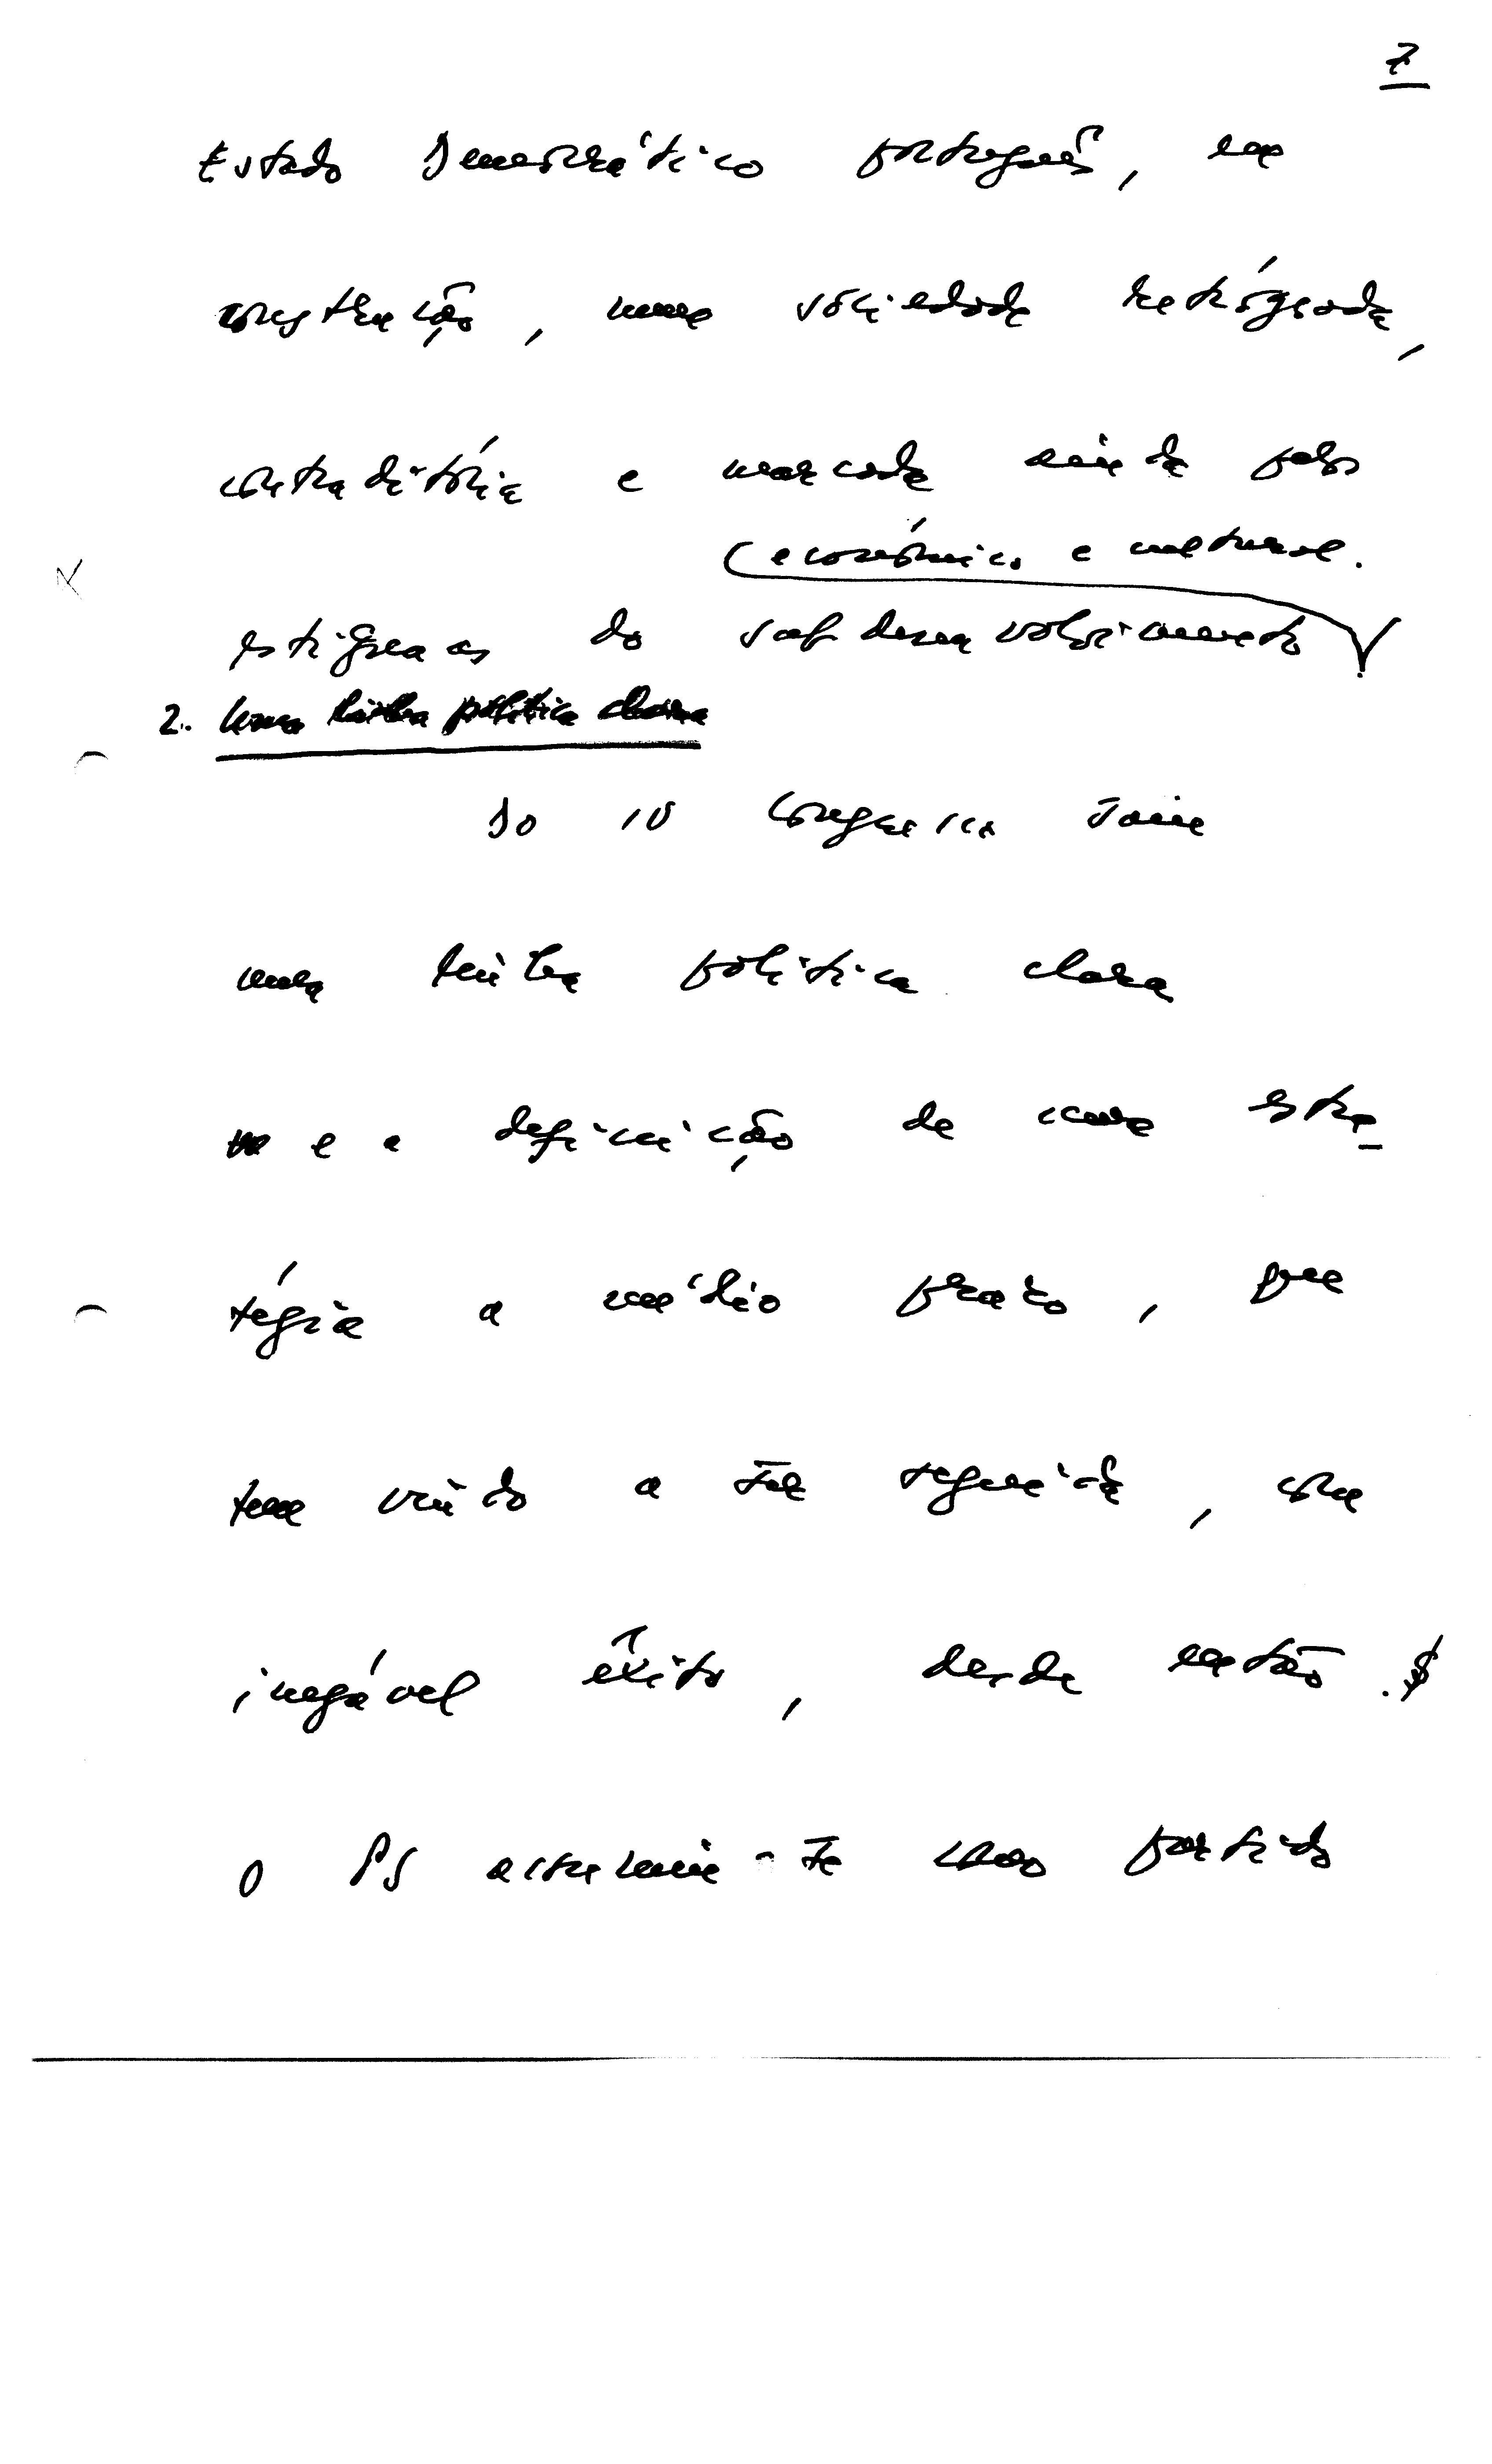 7
Estado Democrático português, em
construção, numa sociedade retrógrada,
contraditória e marcada ainda pelos
(económico e cultural.
estigmas do subdesenvolvimento
2. Uma linha política clara
Do IV Congresso saiu
uma linha política clara
e a definição de uma estra-
tégia a médio prazo, que
tem vindo a ser seguida, com
inegável êxito, desde então.
O PS assumiu-se como partido